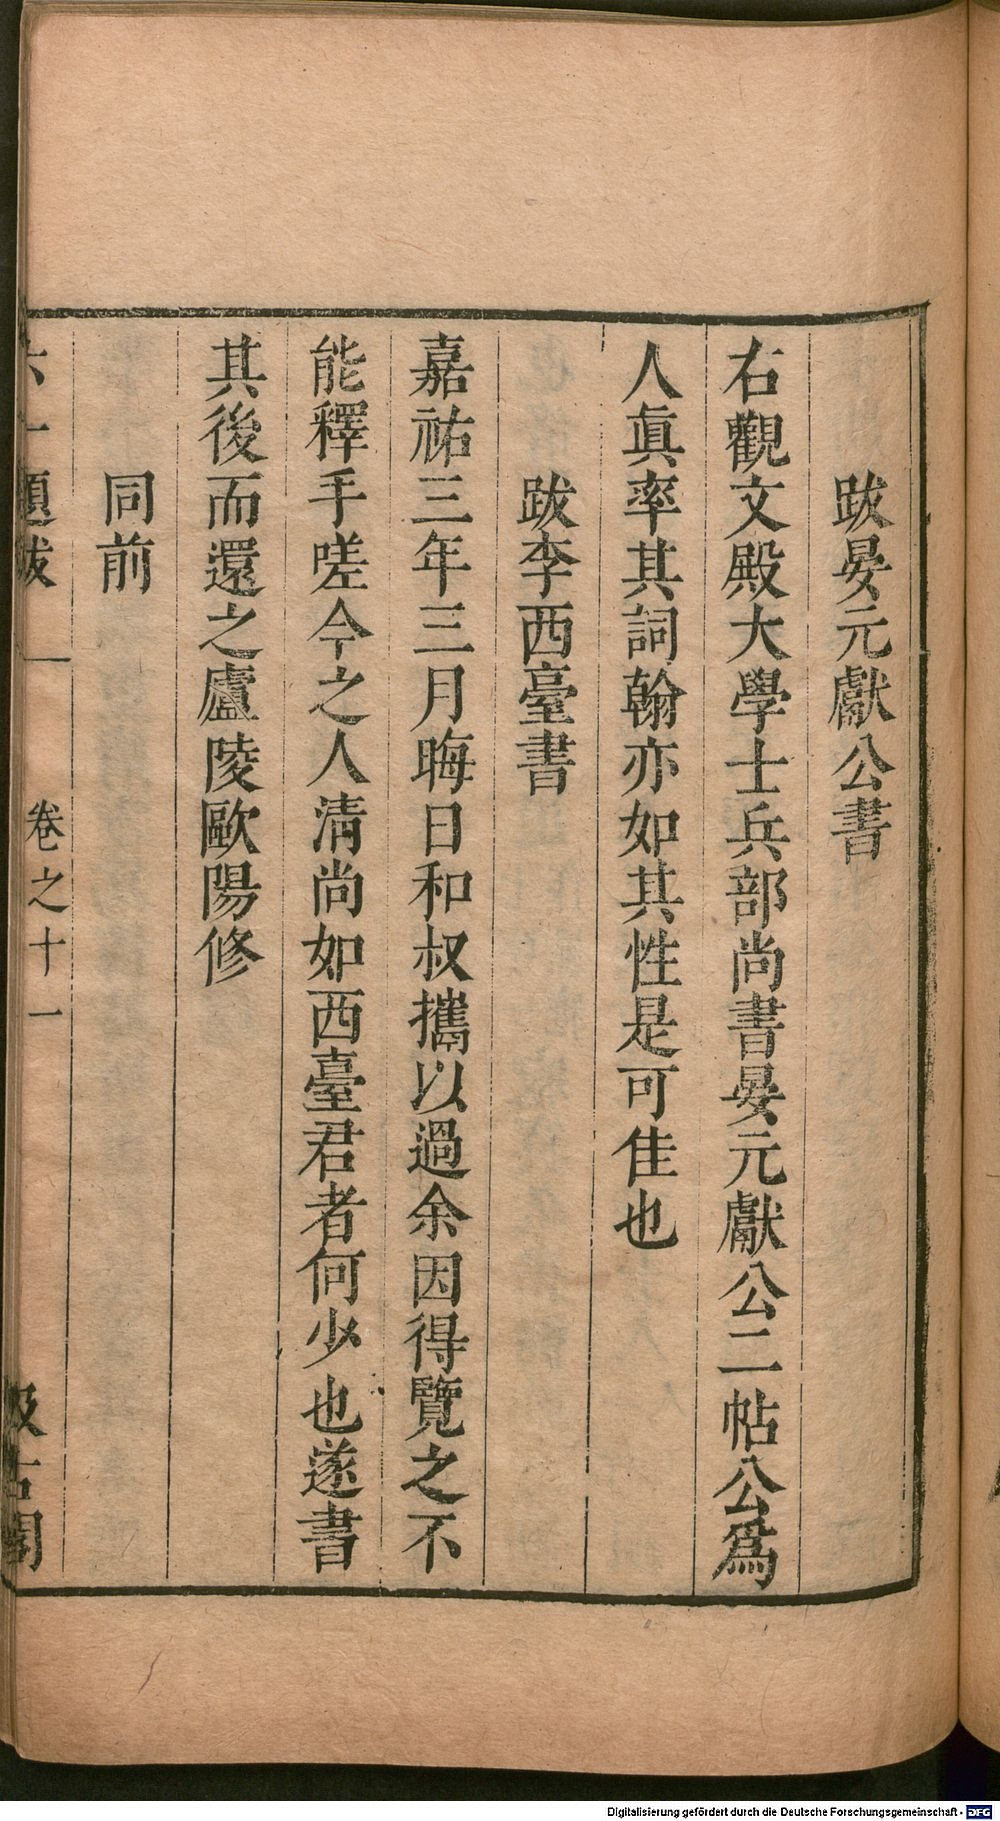 跋晏元獻公書
右觀文殿大學士兵部尚書晏元獻公二帖公爲
人眞率其詞翰亦如其性是可佳也
跋李西臺書
嘉祐三年三月晦日和叔攜以過余因得覽之不
能釋手嗟今之人清尚如西臺君者何少也遂書
其後而還之廬陵歐陽修
同前
六一題跋 卷之十一 汲古閣
Digitalisierung gefördert durch die Deutsche Forschungsgemeinschaft - DFG